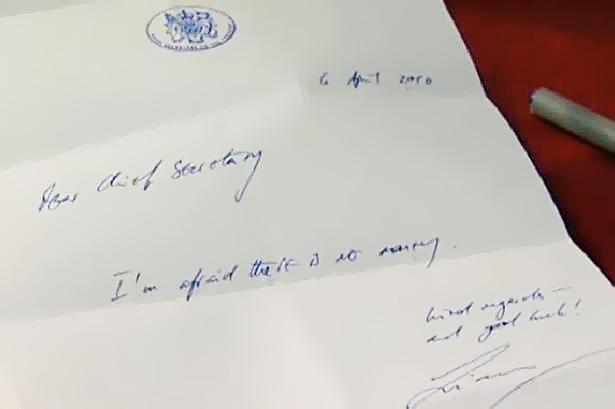 6 April 2010
Dear Chief Secretary
I'm afraid there is no money.
kind regards -
and good luck!
Liam